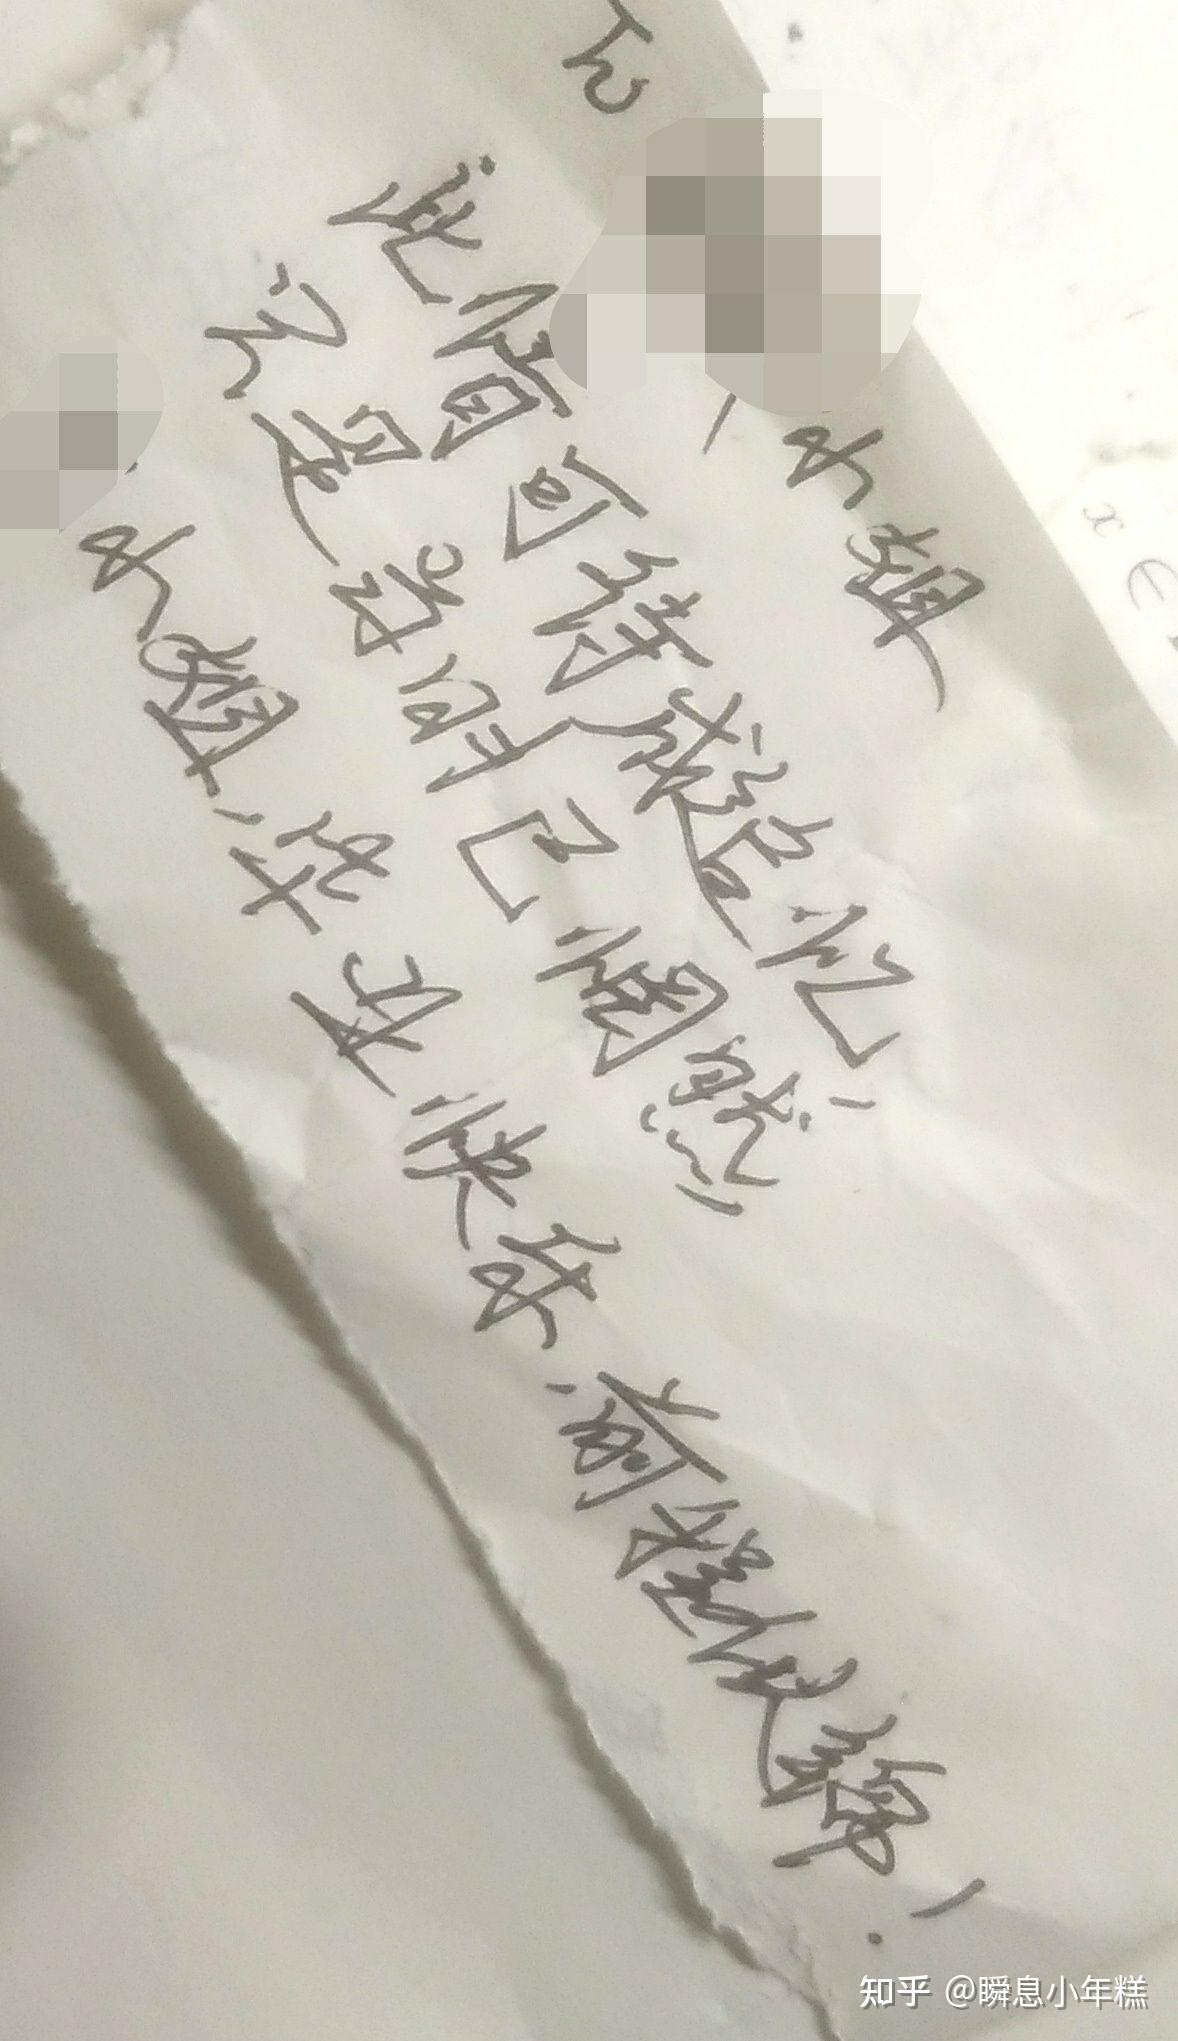 To 小姐
此情可待成追忆,
只是当时已惘然
小姐,毕业快乐,前程似锦!
x ∈
知乎 @瞬息小年糕